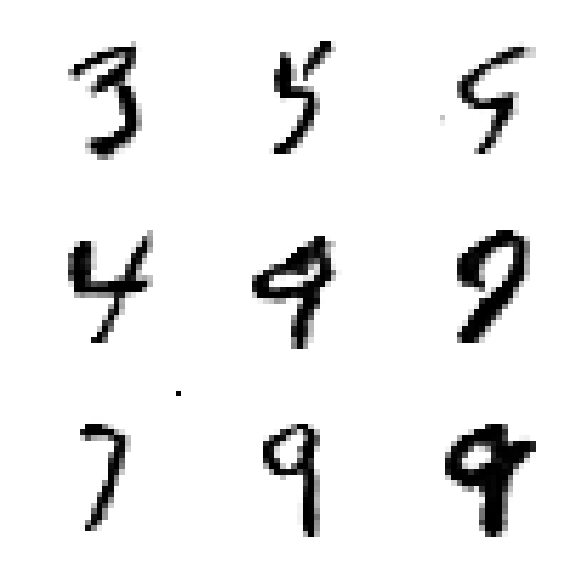 3 5 5
4 9 9
7 9 9